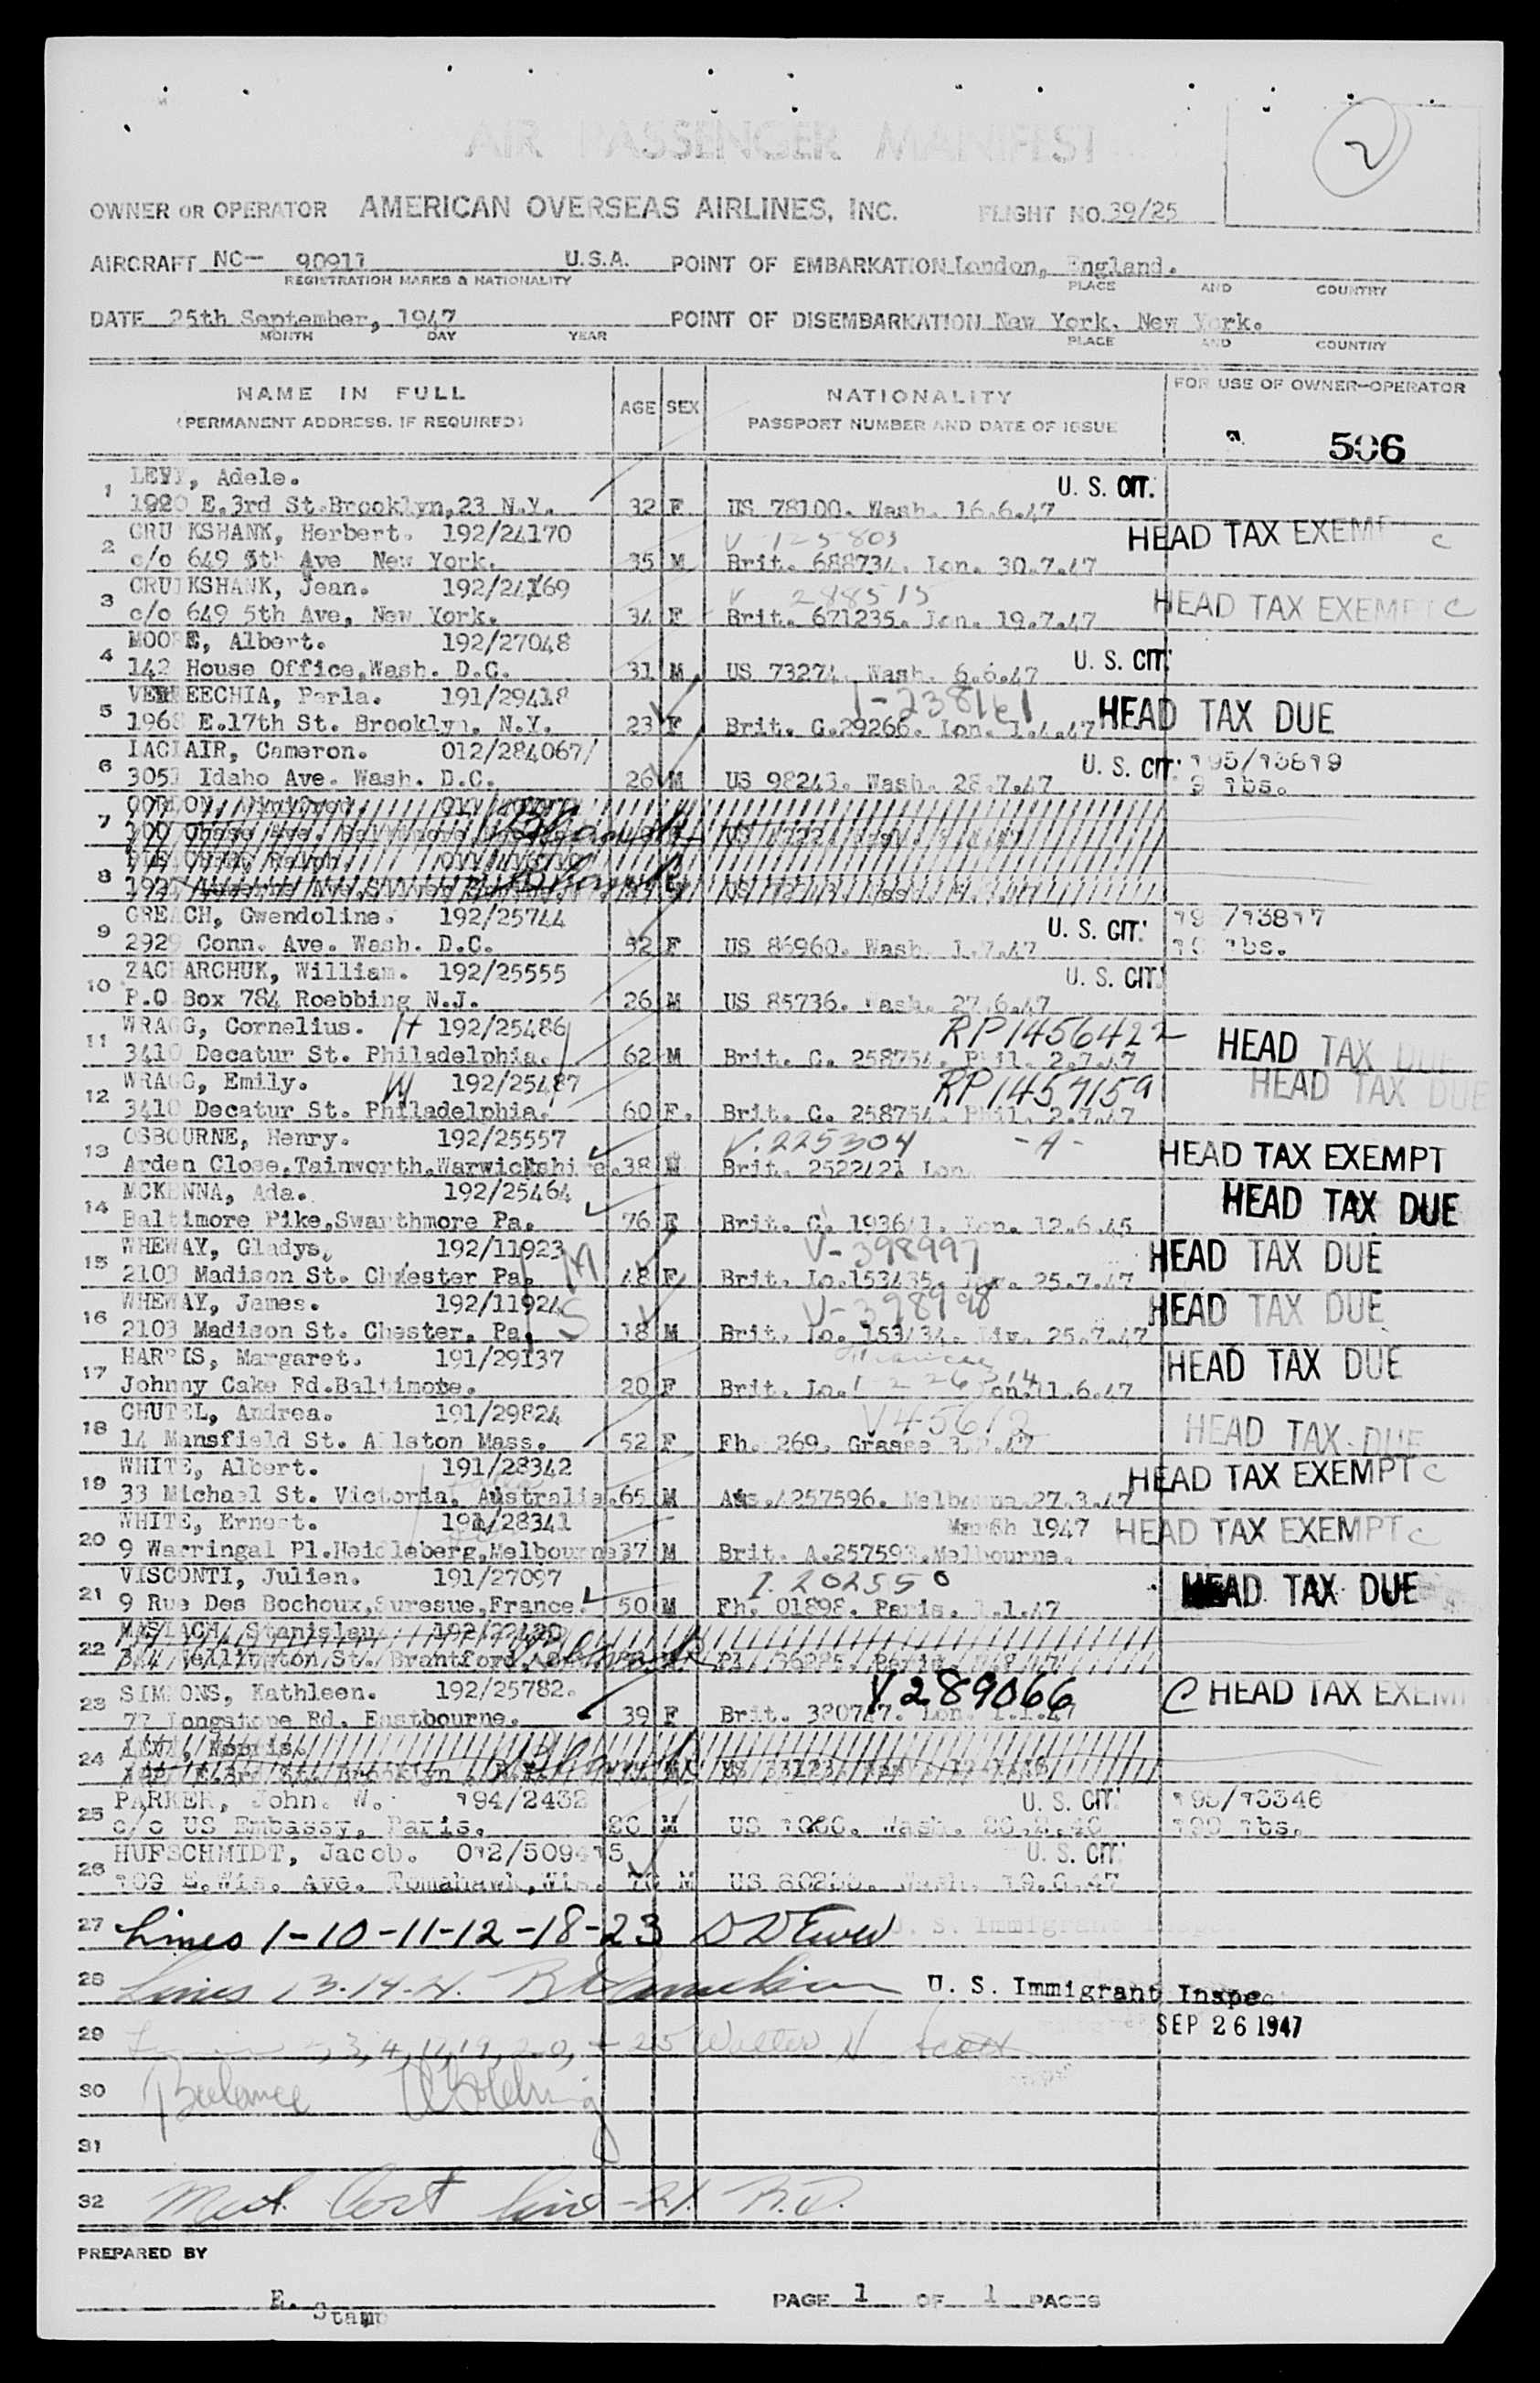 AIR PASSENGER MANIFEST
2
OWNER OR OPERATOR AMERICAN OVERSEAS AIRLINES, INC. FLIGHT NO. 39/25
AIRCRAFT NC- 90911 U.S.A. POINT OF EMBARKATION London, England.
REGISTRATION MARKS & NATIONALITY PLACE AND COUNTRY
DATE 25th September, 1947 POINT OF DISEMBARKATION New York. New York.
MONTH DAY YEAR PLACE AND COUNTRY
NAME IN FULL AGE SEX NATIONALITY FOR USE OF OWNER-OPERATOR
(PERMANENT ADDRESS. IF REQUIRED) PASSPORT NUMBER AND DATE OF ISSUE
506
1 LEVY, Adele. U. S. CIT.
1920 E.3rd St.Brooklyn,23 N.Y. 32 F US 78100. Wash. 16.6.47
2 CRUIKSHANK, Herbert. 192/24170 V-125803 HEAD TAX EXEMPT C
c/o 649 5th Ave New York. 35 M Brit. 688734. Lon. 30.7.47
3 CRUIKSHANK, Jean. 192/24169 V 288515 HEAD TAX EXEMPT C
c/o 649 5th Ave, New York. 34 F Brit. 671235. Lon. 19.7.47
4 MOORE, Albert. 192/27048 U. S. CIT.
142 House Office,Wash. D.C. 31 M US 73274. Wash. 6.6.47
5 VERREECHIA, Perla. 191/29418 1-238161 HEAD TAX DUE
1968 E.17th St. Brooklyn. N.Y. 23 F Brit. C.29266. Lon. 1.4.47
6 LACLAIR, Cameron. 012/284067/ U. S. CIT. 195/13819
3051 Idaho Ave. Wash. D.C. 26 M US 98243. Wash. 28.7.47 9 lbs.
7 Blank
8 Blank
9 CREACH, Gwendoline. 192/25744 U. S. CIT. 195/13817
2929 Conn. Ave. Wash. D.C. 52 F US 86960. Wash. 1.7.47 10 lbs.
10 ZACHARCHUK, William. 192/25555 U. S. CIT.
P.O Box 784 Roebbing N.J. 26 M US 85736. Wash. 27.6.47
11 WRAGG, Cornelius. H 192/25486 RP1456422 HEAD TAX DUE
3410 Decatur St. Philadelphia. 62 M Brit. C. 258754. Phil. 2.7.47
12 WRAGG, Emily. W 192/25487 RP1457159 HEAD TAX DUE
3410 Decatur St. Philadelphia. 60 F. Brit. C. 258754. Phil. 2.7.47
13 OSBOURNE, Henry. 192/25557 V.225304 -A- HEAD TAX EXEMPT
Arden Close,Tainworth,Warwickshire. 38 M Brit. 2522421 Lon.
14 MCKENNA, Ada. 192/25464 HEAD TAX DUE
Baltimore Pike,Swarthmore Pa. 76 F Brit. C. 193641. Lon. 12.6.45
15 WHEWAY, Gladys. 192/11923 M V-398997 HEAD TAX DUE
2103 Madison St. Chester Pa. 48 F Brit. Lo.153435. Liv. 25.7.47
16 WHEWAY, James. 192/11924 S V-398998 HEAD TAX DUE
2103 Madison St. Chester. Pa. 18 M Brit. Lo. 153434. Liv. 25.7.47
17 HARRIS, Margaret. 191/29137 HEAD TAX DUE
Johnny Cake Rd.Baltimore. 20 F Brit. Lo. Lon.11.6.47
18 CHUTEL, Andrea. 191/29824 HEAD TAX DUE
14 Mansfield St. Allston Mass. 52 F Fh. 269. Grasse
19 WHITE, Albert. 191/28342 HEAD TAX EXEMPT C
33 Michael St. Victoria. Australia. 65 M Aus. 257596. Melbourne.27.3.47
20 WHITE, Ernest. 191/28341 March 1947 HEAD TAX EXEMPT C
9 Warringal Pl.Heidleberg,Melbourne 37 M Brit. A.257593.Melbourne.
21 VISCONTI, Julien. 191/27097 1.202550 HEAD TAX DUE
9 Rue Des Bochoux,Suresue,France. 50 M Fh. 01898. Paris. 1.1.47
22 MASLACH, Stanislau. 192/22420
344 Wellington St. Brantford. Blank Pl. 36285. Paris
23 SIMMONS, Kathleen. 192/25782. V289066 C HEAD TAX EXEMPT
77 Longstone Rd. Eastbourne. 39 F Brit. 380747. Lon. 1.1.47
24 Blank
25 PARKER, John. W. 194/2432 U. S. CIT. 195/13346
c/o US Embassy, Paris. M US Wash. 100 lbs.
26 HUFSCHMIDT, Jacob. 012/509415 U. S. CIT.
109 E.Wis. Ave. Tomahawk,Wis. 70 M US Wash. 19.6.47
27 Lines 1-10-11-12-18-23 U. S. Immigrant
28 Lines 13-14-21. U. S. Immigrant Inspec
29 3, 4, 17, 19, 20, + 25 Walter H Scott SEP 26 1947
30 Balance
31
32 Med. Cert line -21. R.D.
PREPARED BY
E. Stamp PAGE 1 OF 1 PAGES